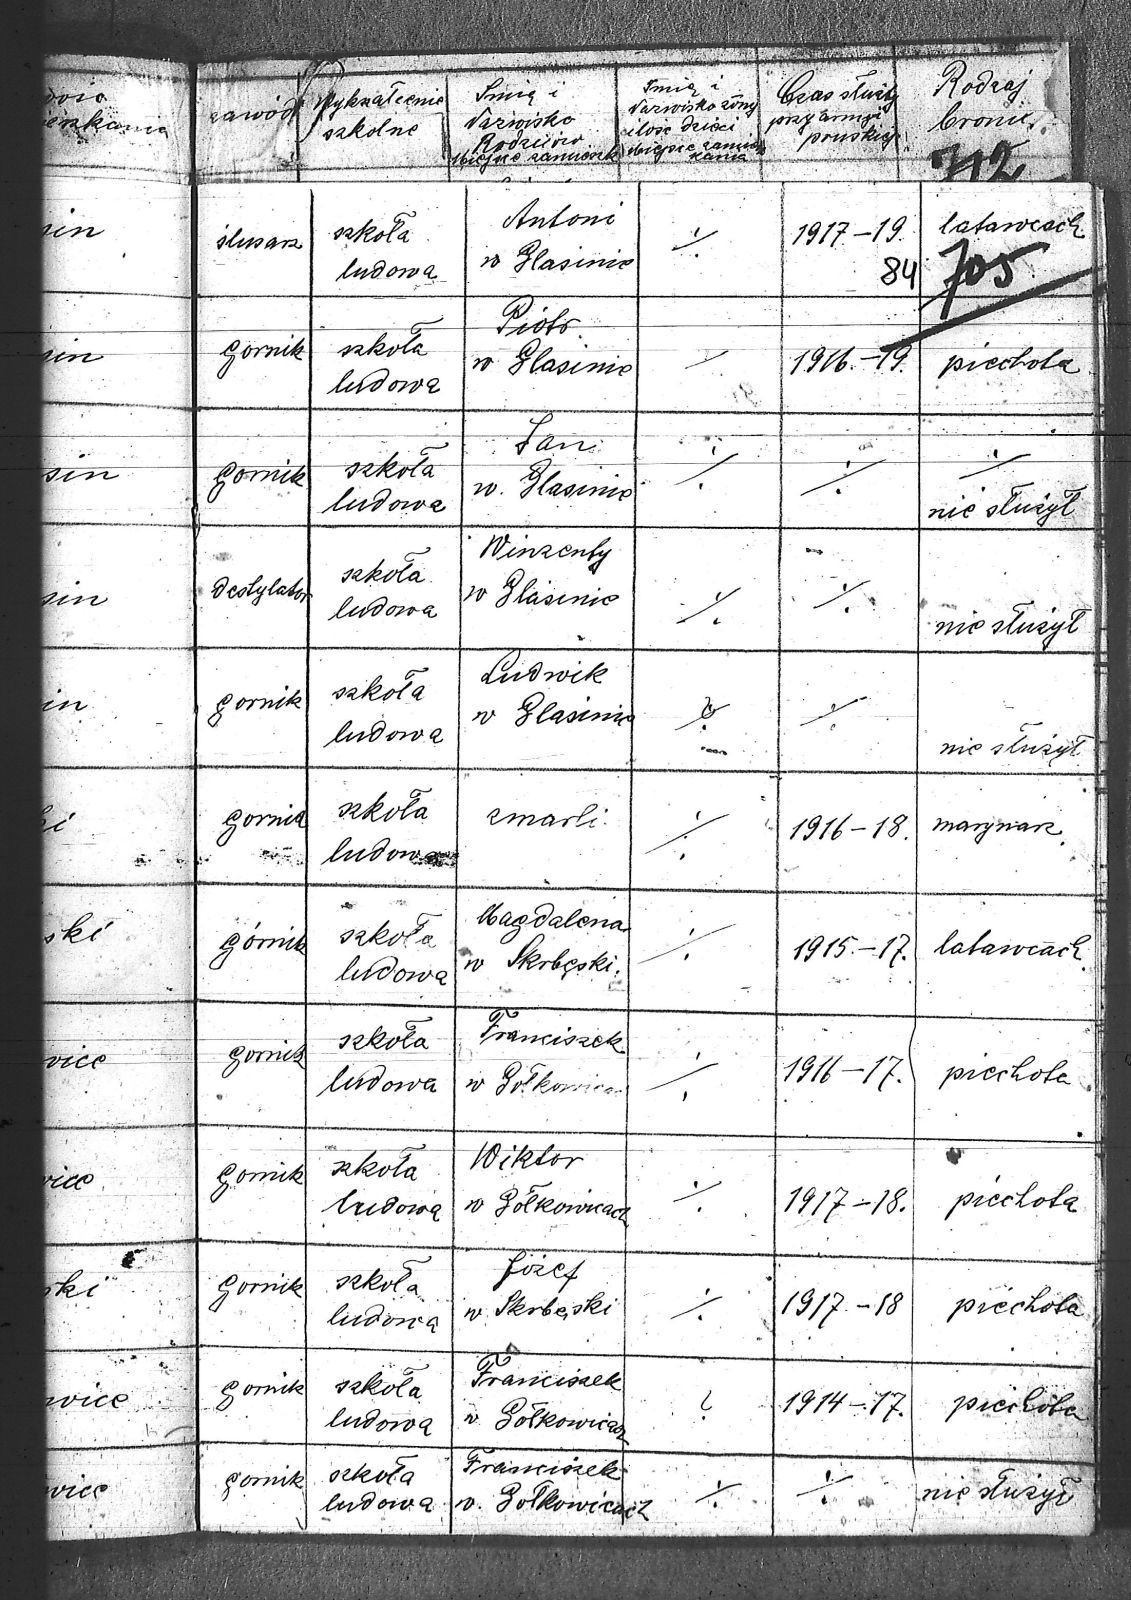 zawód
Wykształcenie
szkolne
Imię i
Nazwisko
Rodziców
Miejsce zamieszk
Imię i
Nazwisko żony
ilość dzieci
Miejsce zamiesz
kania
Czas służby
przy armji
pruskiej
Rodzaj
broni.
712
sin
ślusarz
szkoła
ludowa
Antoni
w Glasinie
·/.
1917-19.
latawcach
84
705
sin
gornik
szkoła
ludowa
Piotr
w Glasinie
1916.-19.
piechota
sin
gornik
szkoła
ludowa
Jan
w. Glasinie
·/.
·/.
·/.
nie służył
sin
destylator
szkoła
ludowa
Winzenty
w Glasinie
·/.
·/.
nie służył
in
gornik
szkoła
ludowa
Ludwik
w Glasinie
·/.
nie służył
ki
gornik
szkoła
ludowa
zmarli
·/.
1916-18.
marynarz.
ski
górnik
szkoła
ludowa
Magdalena
w Skrbęski.
·/.
1915.-17.
latawcach.
wice
gornik
szkoła
ludowa
Franciszek
w Gołkowicac
·/.
1916-17.
piechota
wice
gornik
szkoła
ludowa
Wiktor
w Gołkowicach
·/.
1917-18.
piechota
ski
gornik
szkoła
ludowa
Józef
w Skrbęski
·/.
1917.-18
piechota
wice
gornik
szkoła
ludowa
Franciszek
w Gołkowicach
1914-17.
piechota
wice
gornik
szkoła
ludowa
Franciszek
w. Gołkowicach
·/.
·/.
nie służył